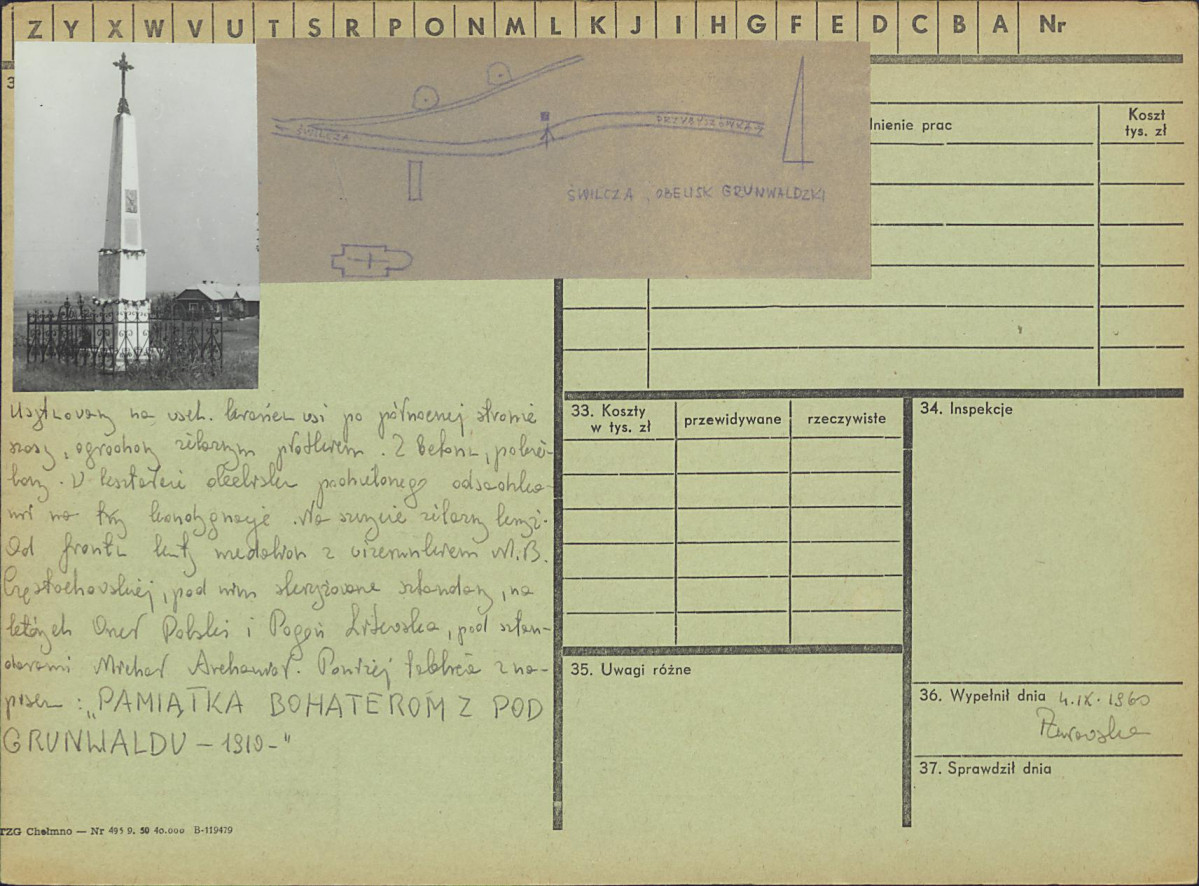 Z Y X W V U T S R P O N M L K J I H G F E D C B A Nr
3
ŚWILCZA
PRZYBYSZÓWKA
ŚWILCZA, OBELISK GRUNWALDZKI
lnienie prac
Koszt
tys. zł
Usytuowany na wsch. krańcu wsi po północnej stronie
szosy, ogrodzony żelaznym płotkiem. Z betonu, pobie-
lany. W kształcie obelisku podzielonego odsadzka-
mi na trzy kondygnacje. Na szczycie żelazny krzyż.
Od frontu kuty medalion z wizerunkiem M.B.
Częstochowskiej, pod nim skrzyżowane sztandary, na
których Orzeł Polski i Pogoń Litewska, pod sztan-
darami Michał Archanioł. Poniżej tablica z na-
pisem: „PAMIĄTKA BOHATEROM Z POD
GRUNWALDU – 1910 – "
33. Koszty
w tys. zł
przewidywane
rzeczywiste
34. Inspekcje
35. Uwagi różne
36. Wypełnił dnia 4.IX.1960
37. Sprawdził dnia
TZG Chełmno — Nr 495 9. 50 40.000 B-119479